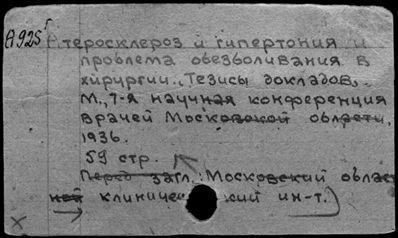 А925г
Атеросклероз и гипертония и
проблема обезболивания в
хирургии. Тезисы докладов.
М., 7-я научная конференция
врачей Московской области,
1936.
59 стр.
Перед загл.: Московский облас
ной клиничес кий ин-т.)